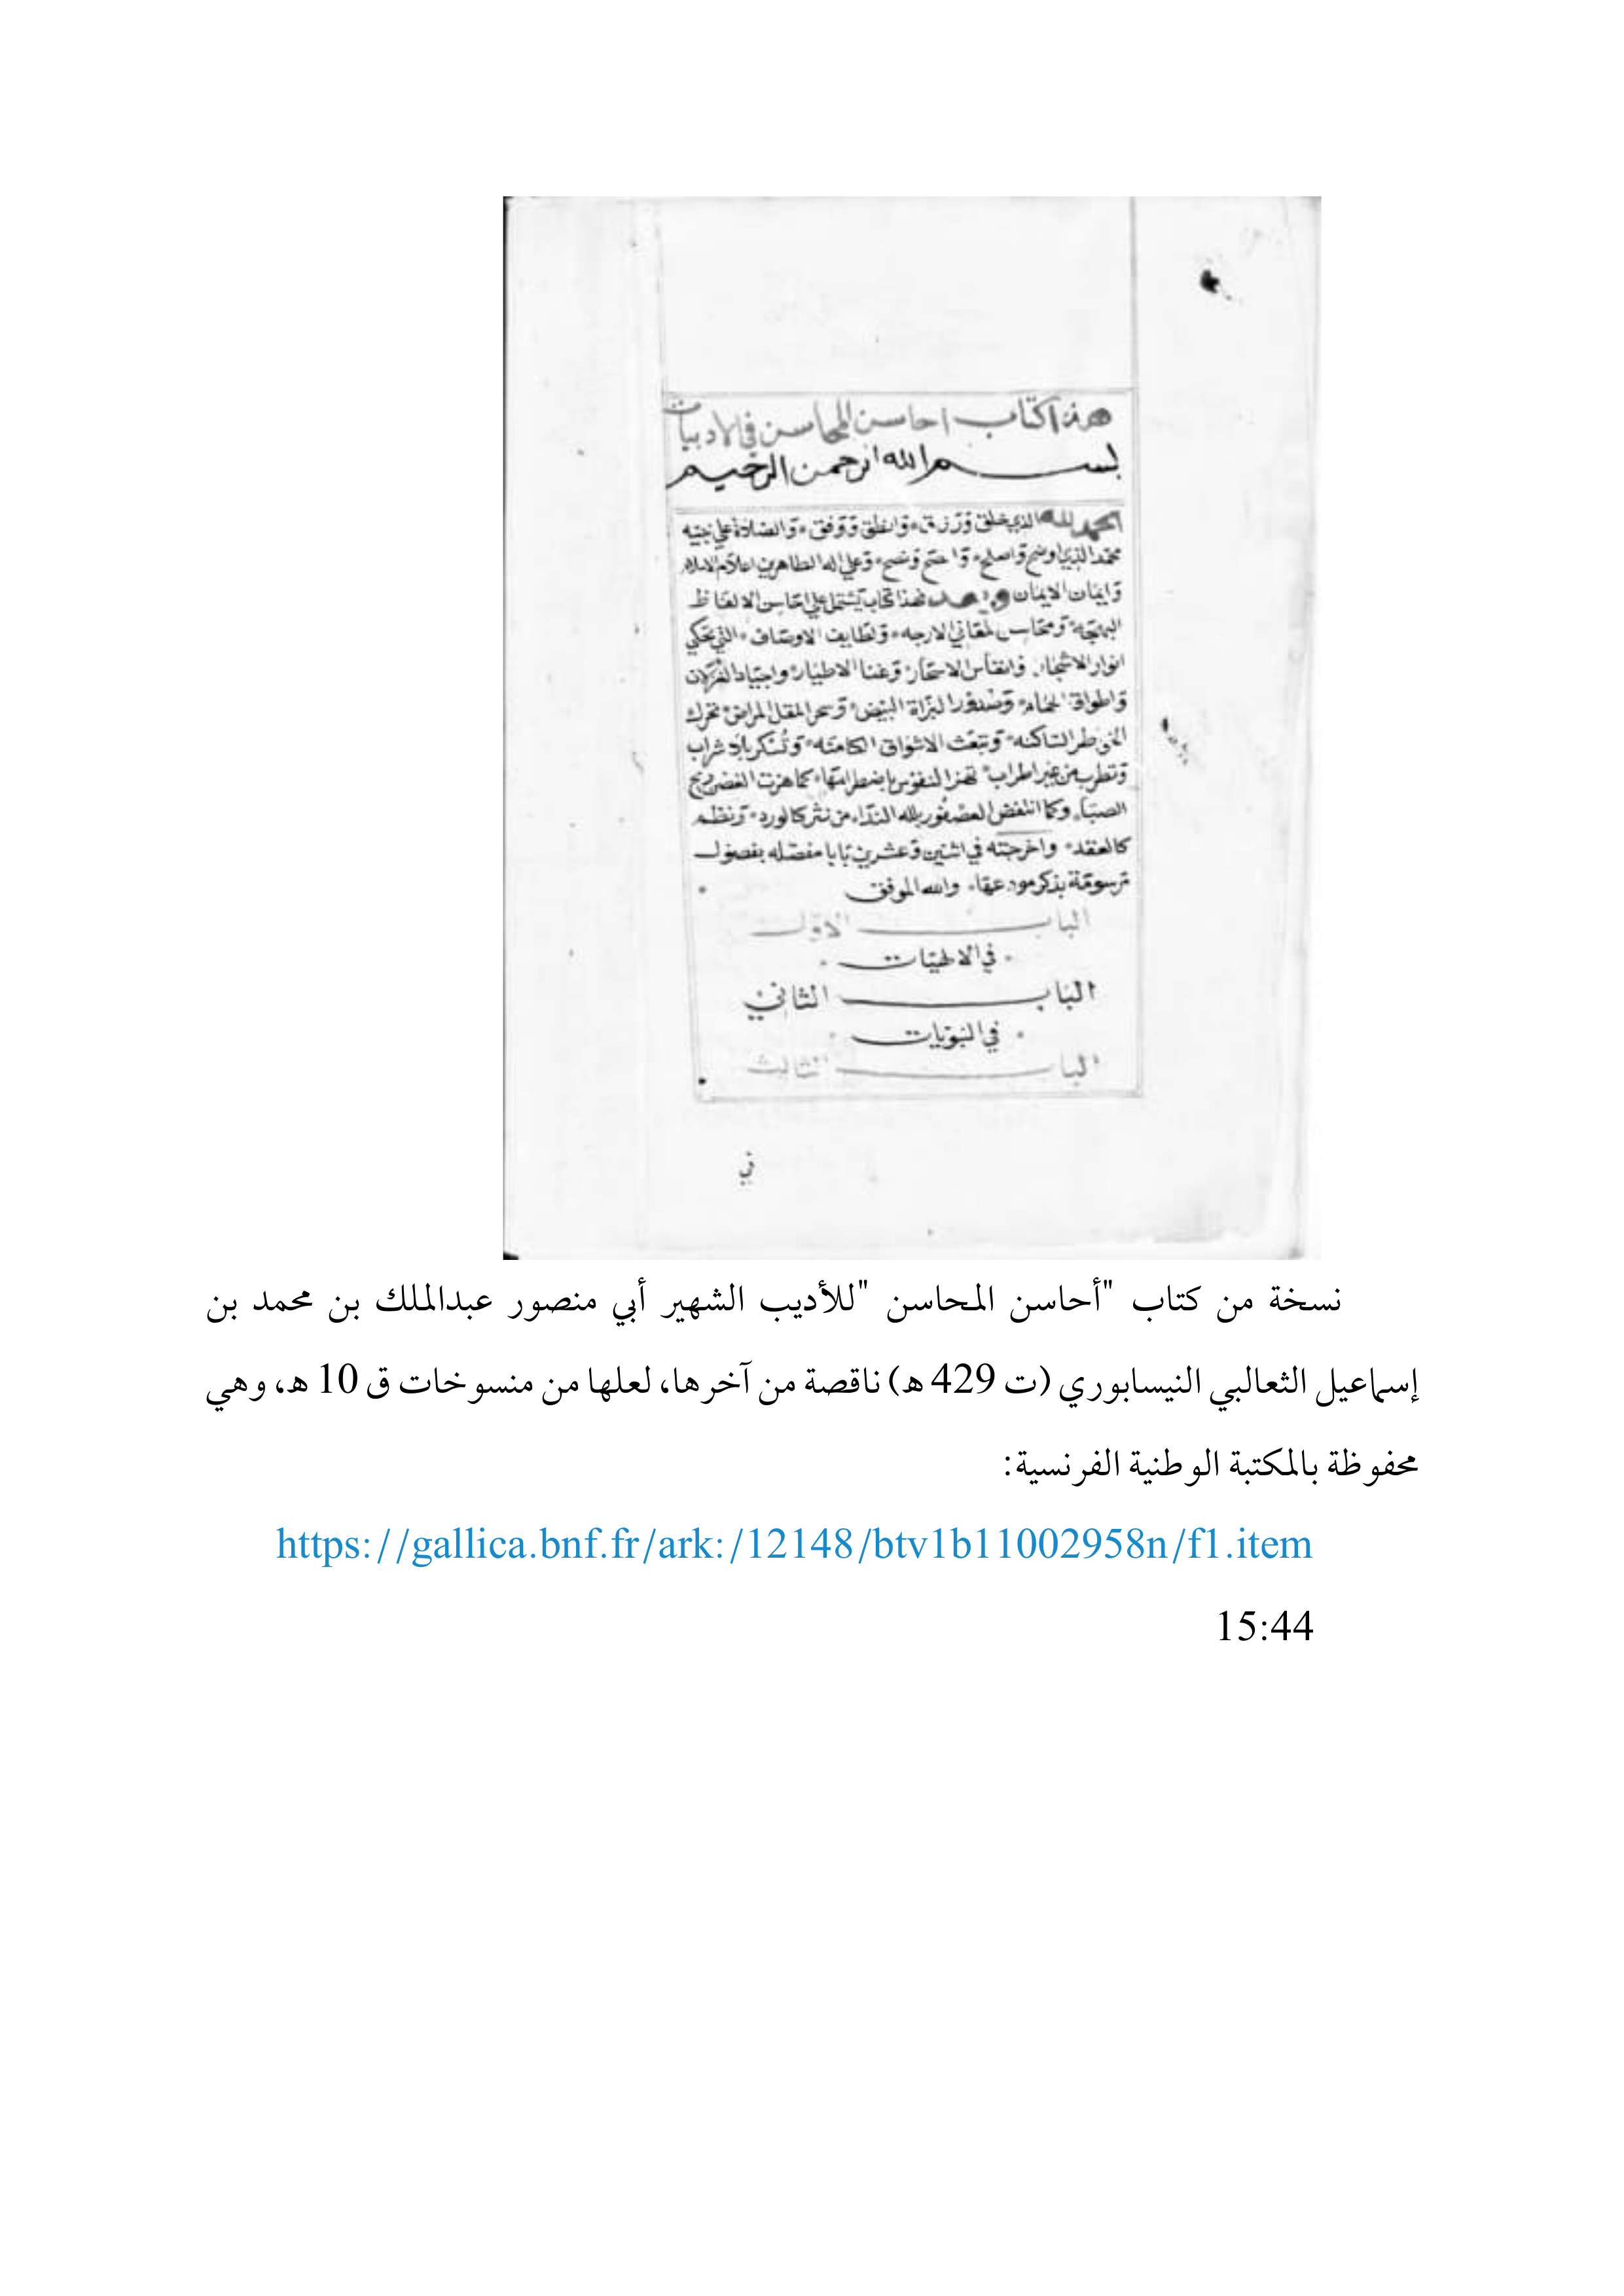 هذا كتاب احاسن المحاسن في الادبيات
بسم الله الرحمن الرحيم
الحمد لله الذي خلق ورزق، وانطق ووفق، والصلاة على نبيه
محمد الذي اوضح واصلح، ونصح، وعلى اله الطاهرين اعلام الاسلام
وايمان الايمان وبعد فهذا كتاب يشتمل على احاسن الالفاظ
البهجة، ومحاسن المعاني الارجه، ولطايف الاوصاف، التي تحكي
انوار الاشجار، وانفاس الاسحار، وغنا الاطيار، واجياد الغزلان
واطواق الحمام، وصدور البزاة البيض، وسحر المقل المراض، تحرك
الخواطر الساكنه، وتبعث الاشواق الكامنه، وتسكر بلا شراب
وتطرب من غير اطراب، تهز النفوس باضطرابها، كما هزت الغصن ريح
الصبا، وكما انتفض العصفور بلله الندا، من نثر كالورد، ونظم
كالعقد، واخرجته في اثنين وعشرين بابا مفصله بفصول
مرسومة بذكر مودعها، والله الموفق
الباب الاول
في الالهيات
الباب الثاني
في النبويات
الباب الثالث
في
نسخة من كتاب "أحاسن المحاسن "للأديب الشهير أبي منصور عبدالملك بن محمد بن
إسماعيل الثعالبي النيسابوري (ت 429 ه) ناقصة من آخرها، لعلها من منسوخات ق 10 ه، وهي
محفوظة بالمكتبة الوطنية الفرنسية:
https://gallica.bnf.fr/ark:/12148/btv1b11002958n/f1.item
15:44